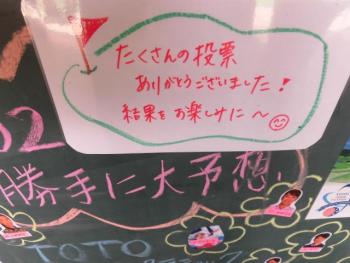 たくさんの投票
ありがとうございました!
結果をお楽しみに〜
02
勝手に大予想
TOTO